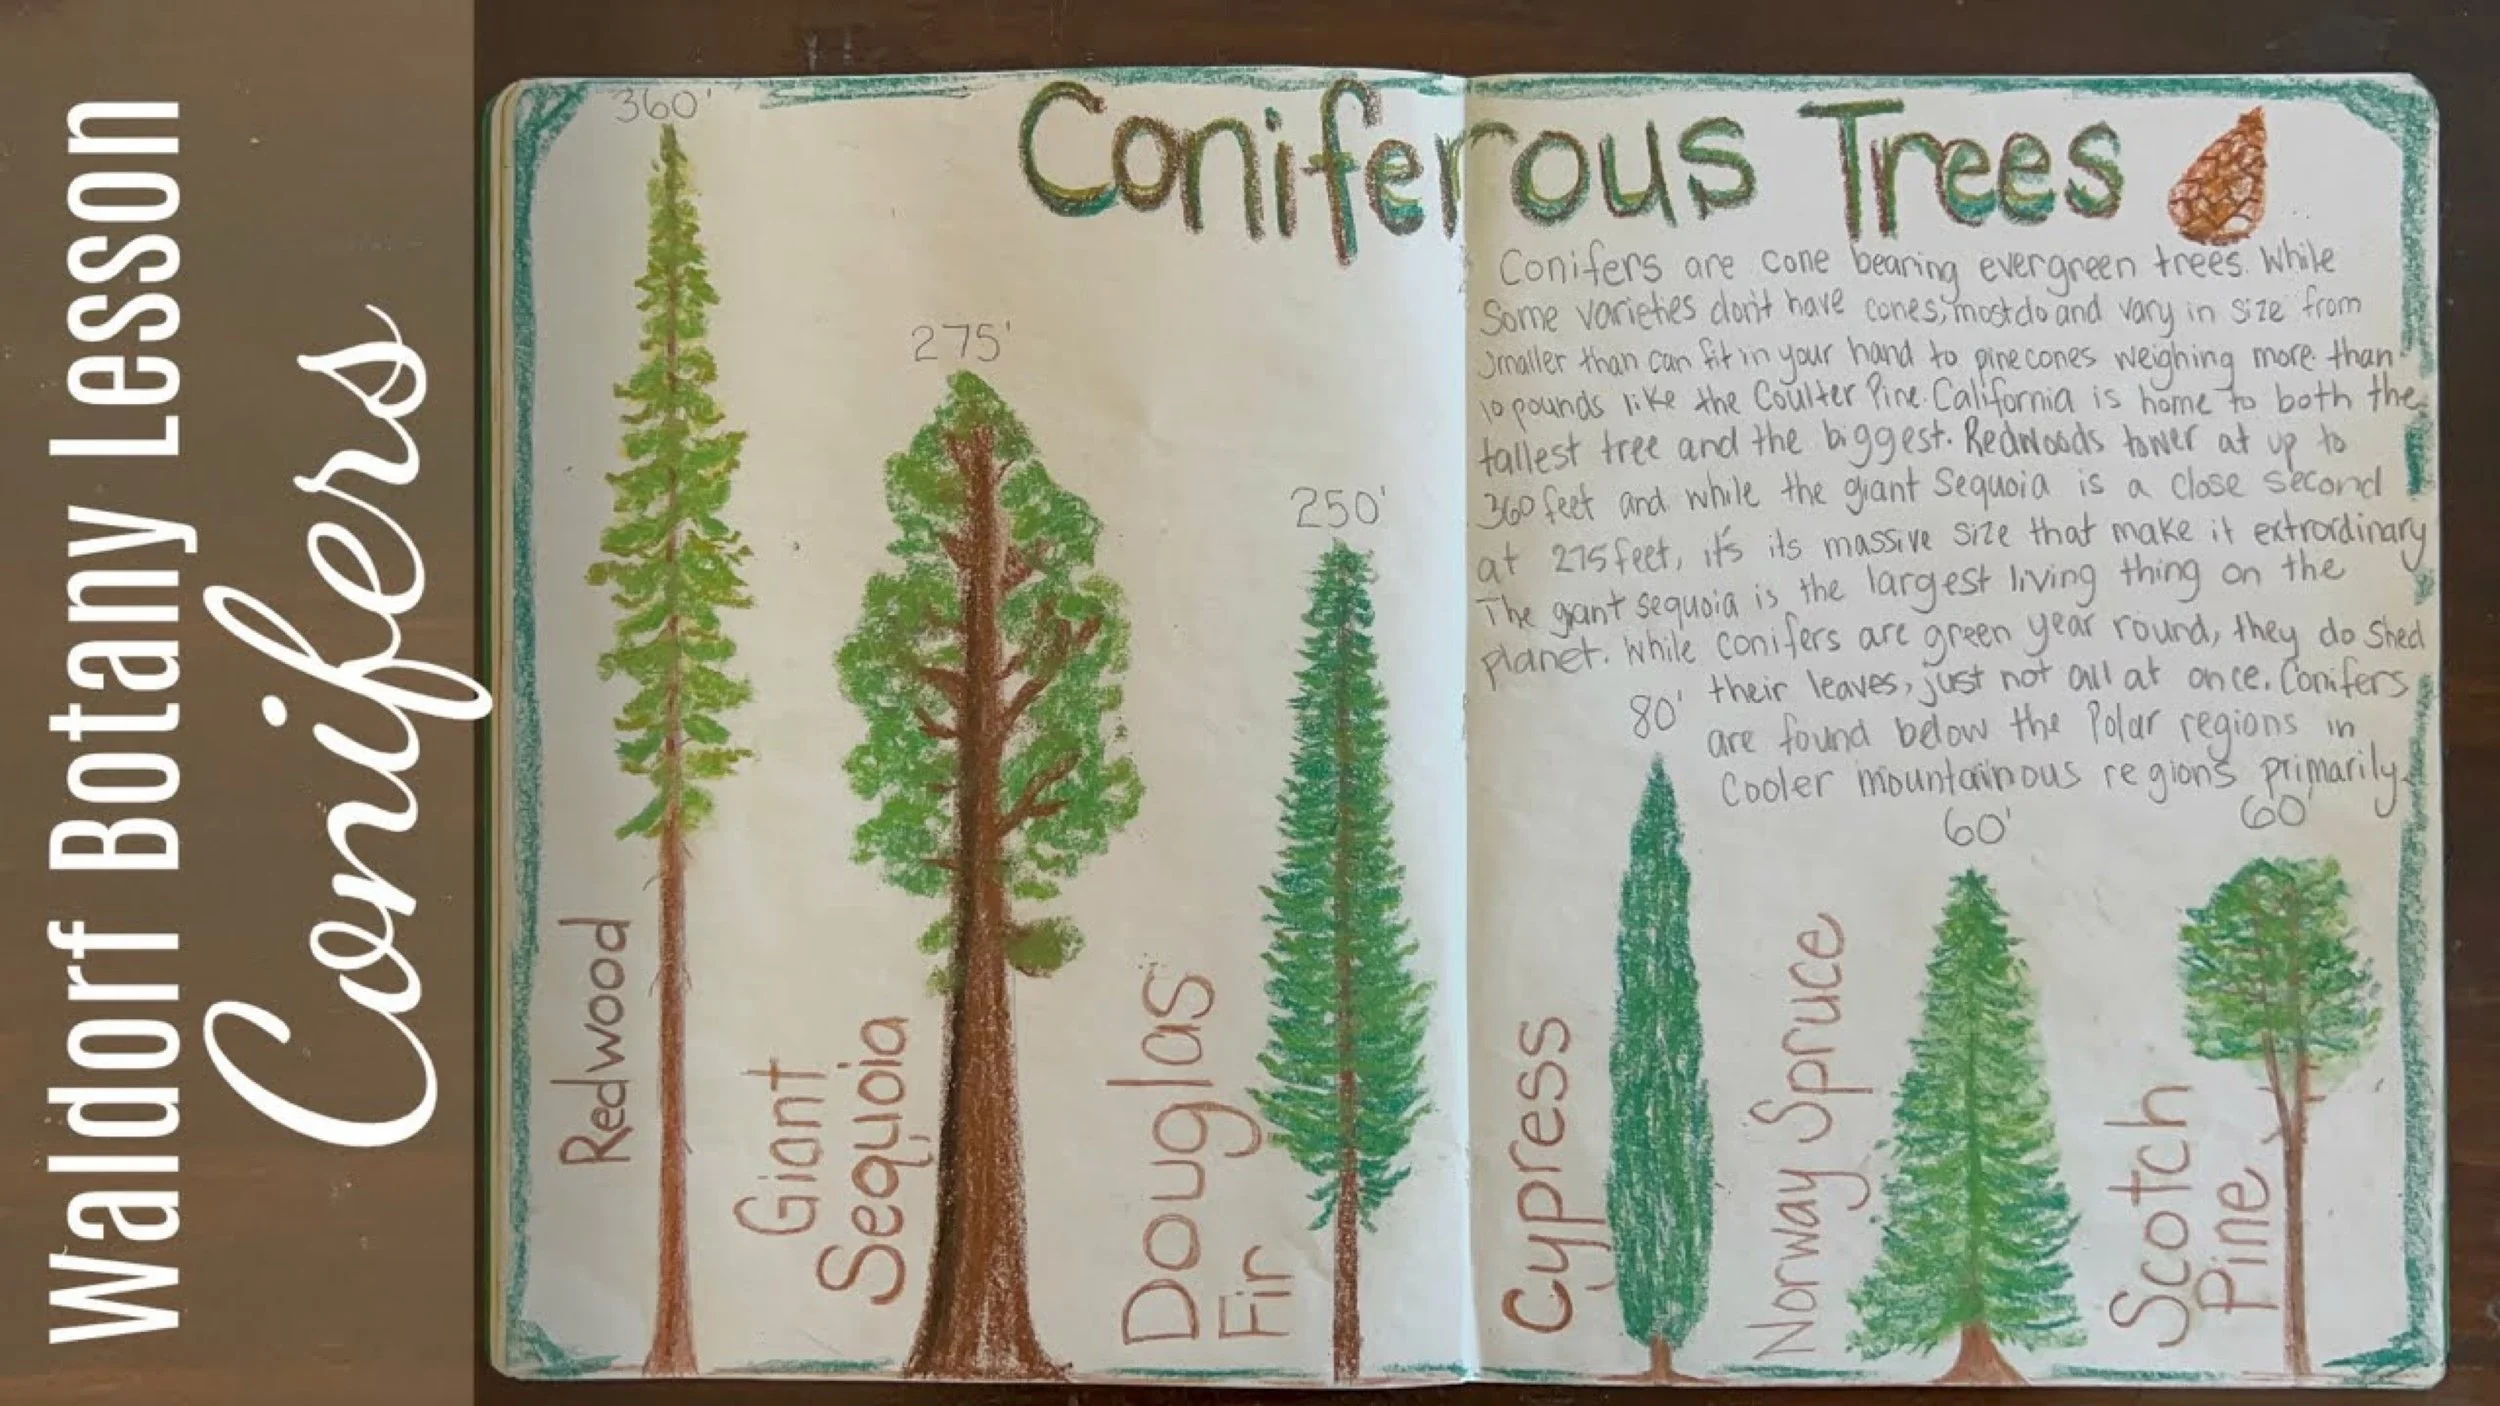 Waldorf Botany Lesson
Conifers
Coniferous Trees
360'
275'
250'
Redwood
Giant
Sequoia
Douglas
Fir
Conifers are cone bearing evergreen trees. While
Some varieties don't have cones, most do and vary in size from
smaller than can fit in your hand to pinecones weighing more than
10 pounds like the Coulter Pine. California is home to both the
tallest tree and the biggest. Redwoods tower at up to
360 feet and while the giant Sequoia is a close second
at 275 feet, it's its massive size that make it extrordinary
The giant sequoia is the largest living thing on the
planet. While conifers are green year round, they do shed
their leaves, just not all at once. Conifers
are found below the Polar regions in
Cooler mountainous regions primarily.
80'
60'
60'
Cypress
Norway Spruce
Scotch
Pine